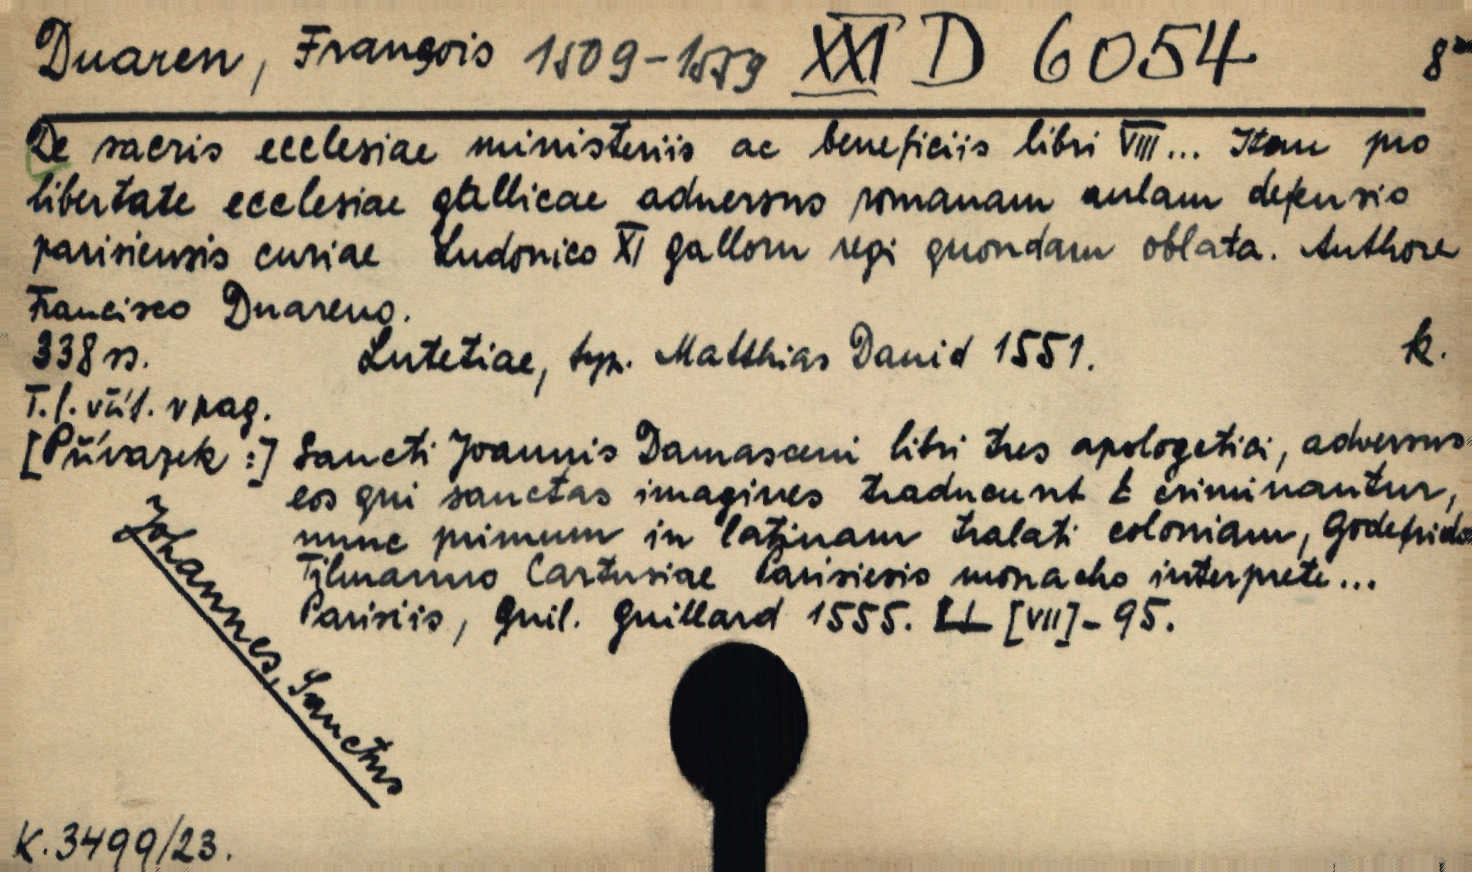 Duaren, François 1509-1559 XXI D 6054 8°
De sacris ecclesiae ministeriis ac beneficiis libri VIII... Item pro
libertate ecclesiae gallicae aduersus romanam aulam defensio
parisiensis curiae Ludouico XI gallorum regi quondam oblata. Authore
Francisco Duareno.
338 ss. Lutetiae, typ. Matthias Dauid 1551. k.
T. l. vüt. v pag.
[Přívazek:] Sancti Joannis Damasceni libri tres apologetici, adversus
eos qui sanctas imagines traducunt & criminantur,
nunc primum in latinam tralati coloniam, Godefrido
Tilmanno Cartusiae Parisiesis monacho interprete...
Parisiis, Guil. Guillard 1555. [VII]-95.
Johannes, Sanctus
K.3499/23.